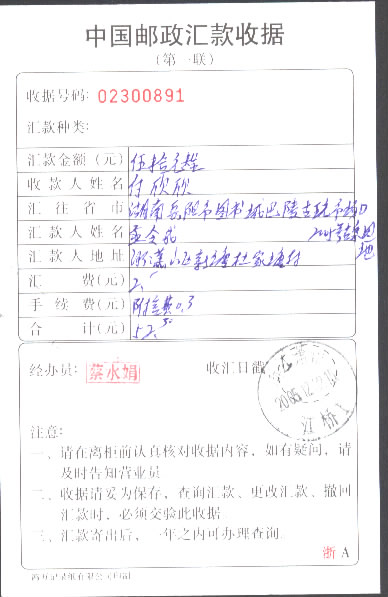 中国邮政汇款收据
(第一联)
收据号码: 02300891
汇款种类:
汇款金额(元) 伍拾元整
收款人姓名 付欣欣
汇往省市 湖南岳阳市图书城巴陵古玩市场
汇款人姓名 孟全成
汇款人地址
汇 费(元) 2.
手续费(元) 附信费0.3
合 计(元) 52.30
经办员: 蔡水娟 收汇日戳
2005.12.
江桥
注意:
一、请在离柜前认真核对收据内容,如有疑问,请
及时告知营业员
二、收据请妥为保存,查询汇款、更改汇款、撤回
汇款时,必须交验此收据
三、汇款寄出后,一年之内可办理查询.
浙 A